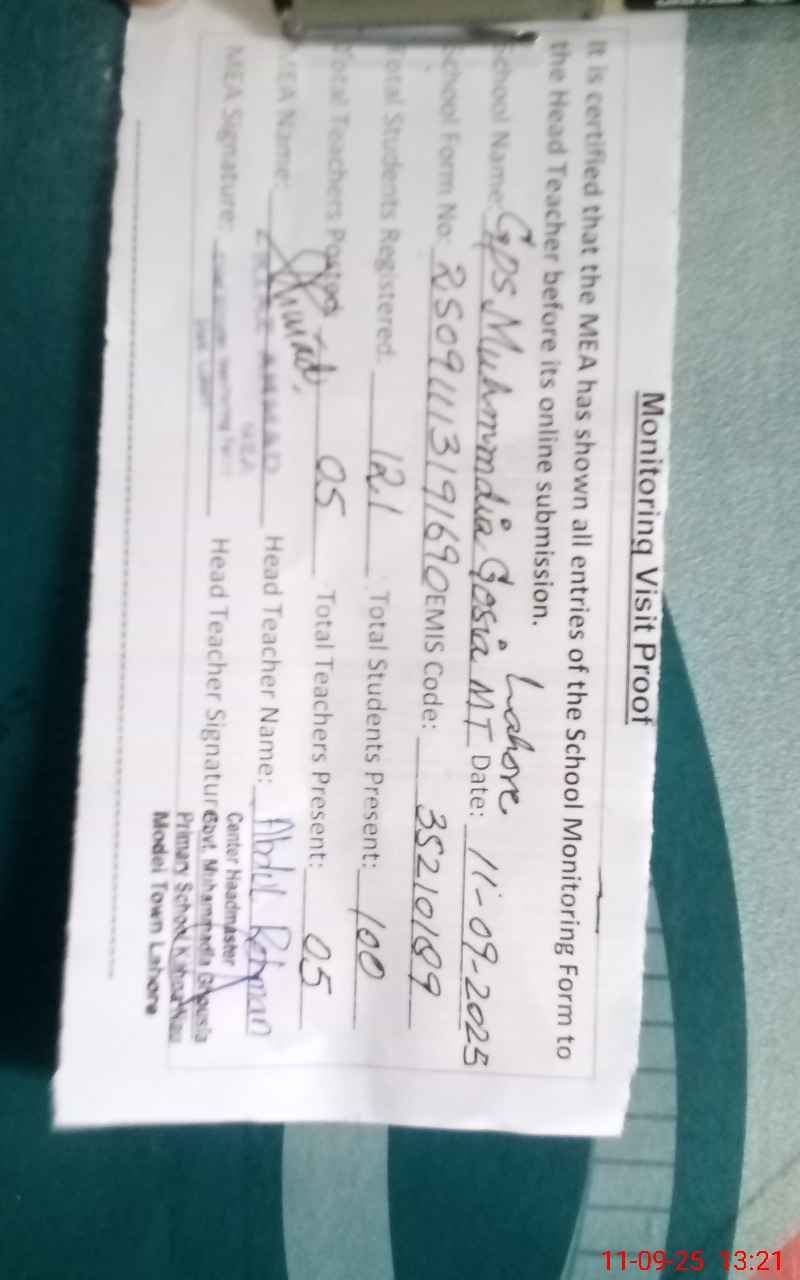 Monitoring Visit Proof
It is certified that the MEA has shown all entries of the School Monitoring Form to
the Head Teacher before its online submission.
School Name: Gps Muhmmdia Gosia MT Lahore Date: 11-09-2025
School Form No: RS091113191690 EMIS Code: 35210189
Total Students Registered: 121 Total Students Present: 100
Total Teachers Posted 05 Total Teachers Present: 05
MEA Name: AHMAD Head Teacher Name: Abdul Rehman
MEA
MEA Signature: Head Teacher Signature
Center Headmaster
Govt. Muhammadia Ghousia
Primary School Kahna Nau
Model Town Lahore
11-09-25 13:21